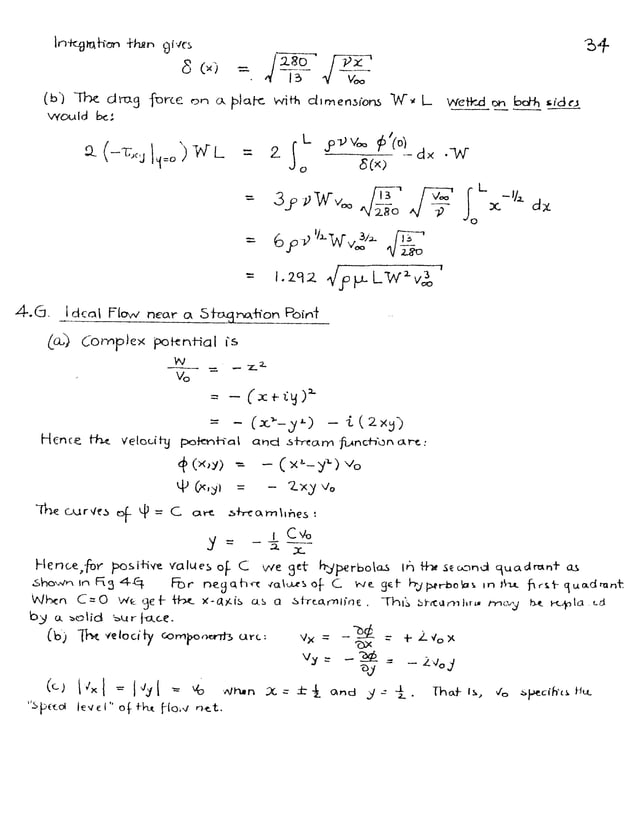 Integration then gives 34
δ(x) = √(280/13) √(νx/v∞)
(b) The drag force on a plate with dimensions W × L wetted on both sides
would be:
2(-τxy|y=0) WL = 2 ∫₀ᴸ ρνv∞ φ'(0)/δ(x) dx · W
= 3ρνWv∞ √(13/280) √(v∞/ν) ∫₀ᴸ x^(-1/2) dx
= 6ρν^(1/2) W v∞^(3/2) √(13/280)
= 1.292 √(ρμLW²v∞³)
4.G. Ideal Flow near a Stagnation Point
(a) Complex potential is
W/v₀ = -z²
= -(x+iy)²
= -(x²-y²) - i(2xy)
Hence the velocity potential and stream function are:
φ(x,y) = -(x²-y²)v₀
Ψ(x,y) = -2xyv₀
The curves of Ψ = C are streamlines:
y = -1/2 Cv₀/x
Hence, for positive values of C we get hyperbolas in the second quadrant as
shown in Fig 4.G For negative values of C we get hyperbolas in the first quadrant
When C=0 we get the x-axis as a streamline. This streamline may be replaced
by a solid surface.
(b) The velocity components are: vx = -∂φ/∂x = +2v₀x
vy = -∂φ/∂y = -2v₀y
(c) |vx| = |vy| = v₀ when x = ±½ and y = ½. That is, v₀ specifies the
"speed level" of the flow net.